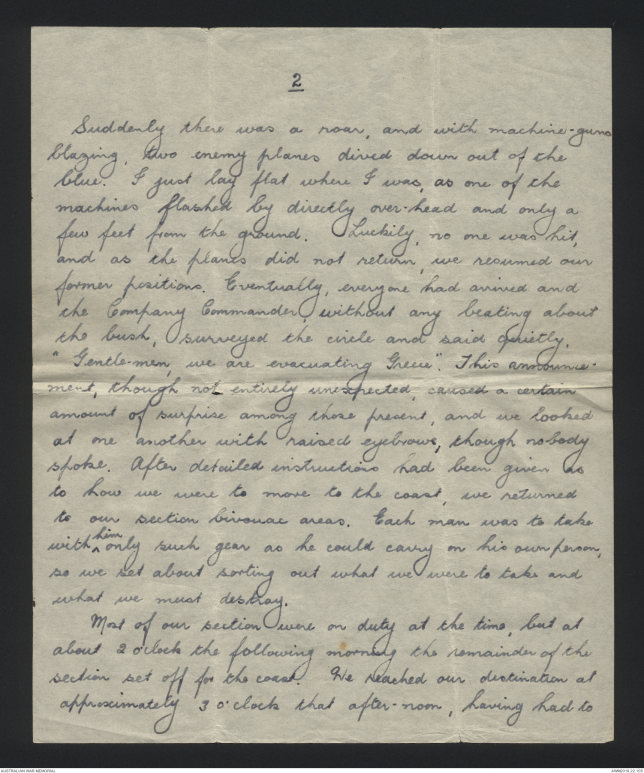 2
Suddenly there was a roar, and with machine-guns
blazing, two enemy planes dived down out of the
blue. I just lay flat where I was, as one of the
machines flashed by directly over-head and only a
few feet from the ground. Luckily, no one was hit,
and as the planes did not return, we resumed our
former positions. Eventually, everyone had arrived and
the Company Commander, without any beating about
the bush, surveyed the circle and said quietly.
"Gentle-men, we are evacuating Greece". This announce-
ment, though not entirely unexpected, caused a certain
amount of surprise among those present, and we looked
at one another with raised eyebrows, though nobody
spoke. After detailed instructions had been given as
to how we were to move to the coast, we returned
to our section bivouac areas. Each man was to take
with him only such gear as he could carry on his own person,
so we set about sorting out what we were to take and
what we must destroy.
Most of our section were on duty at the time, but at
about 2 o'clock the following morning the remainder of the
section set off for the coast. We reached our destination at
approximately 3 o'clock that after-noon, having had to
AUSTRALIAN WAR MEMORIAL